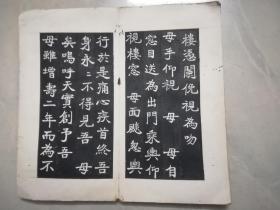 樓憑閣俛視為吻
母手仰視 母 母自
窓目送為出門乘輿仰
視樓窓 母面颺忽輿
行於是痛心疾首終吾
身永永不得見吾 母
矣嗚呼天實創予吾
母雖增壽二年而為不